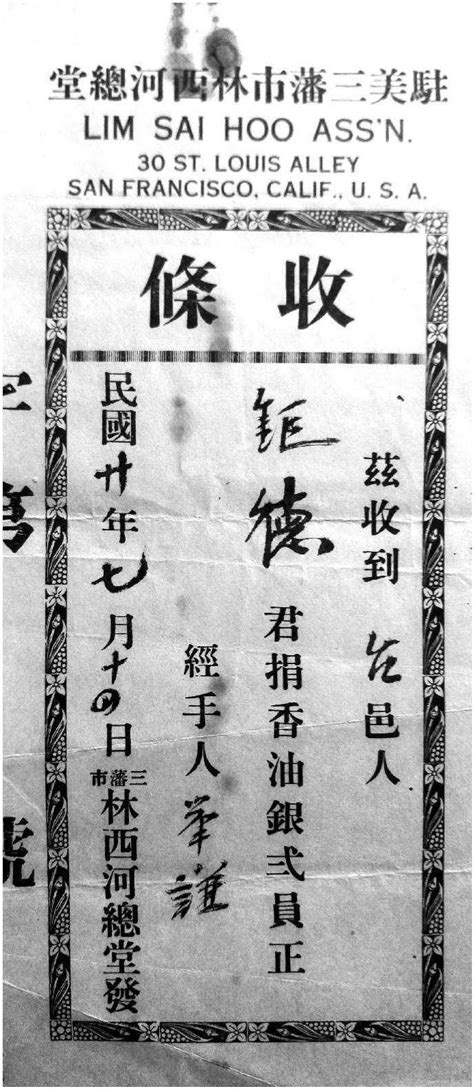 駐美三藩市林西河總堂
LIM SAI HOO ASS'N.
30 ST. LOUIS ALLEY
SAN FRANCISCO, CALIF., U. S. A.
收條
茲收到 台邑人
鉅德 君捐香油銀弍員正
經手人
民國廿年七月十四日 三藩市 林西河總堂發
號